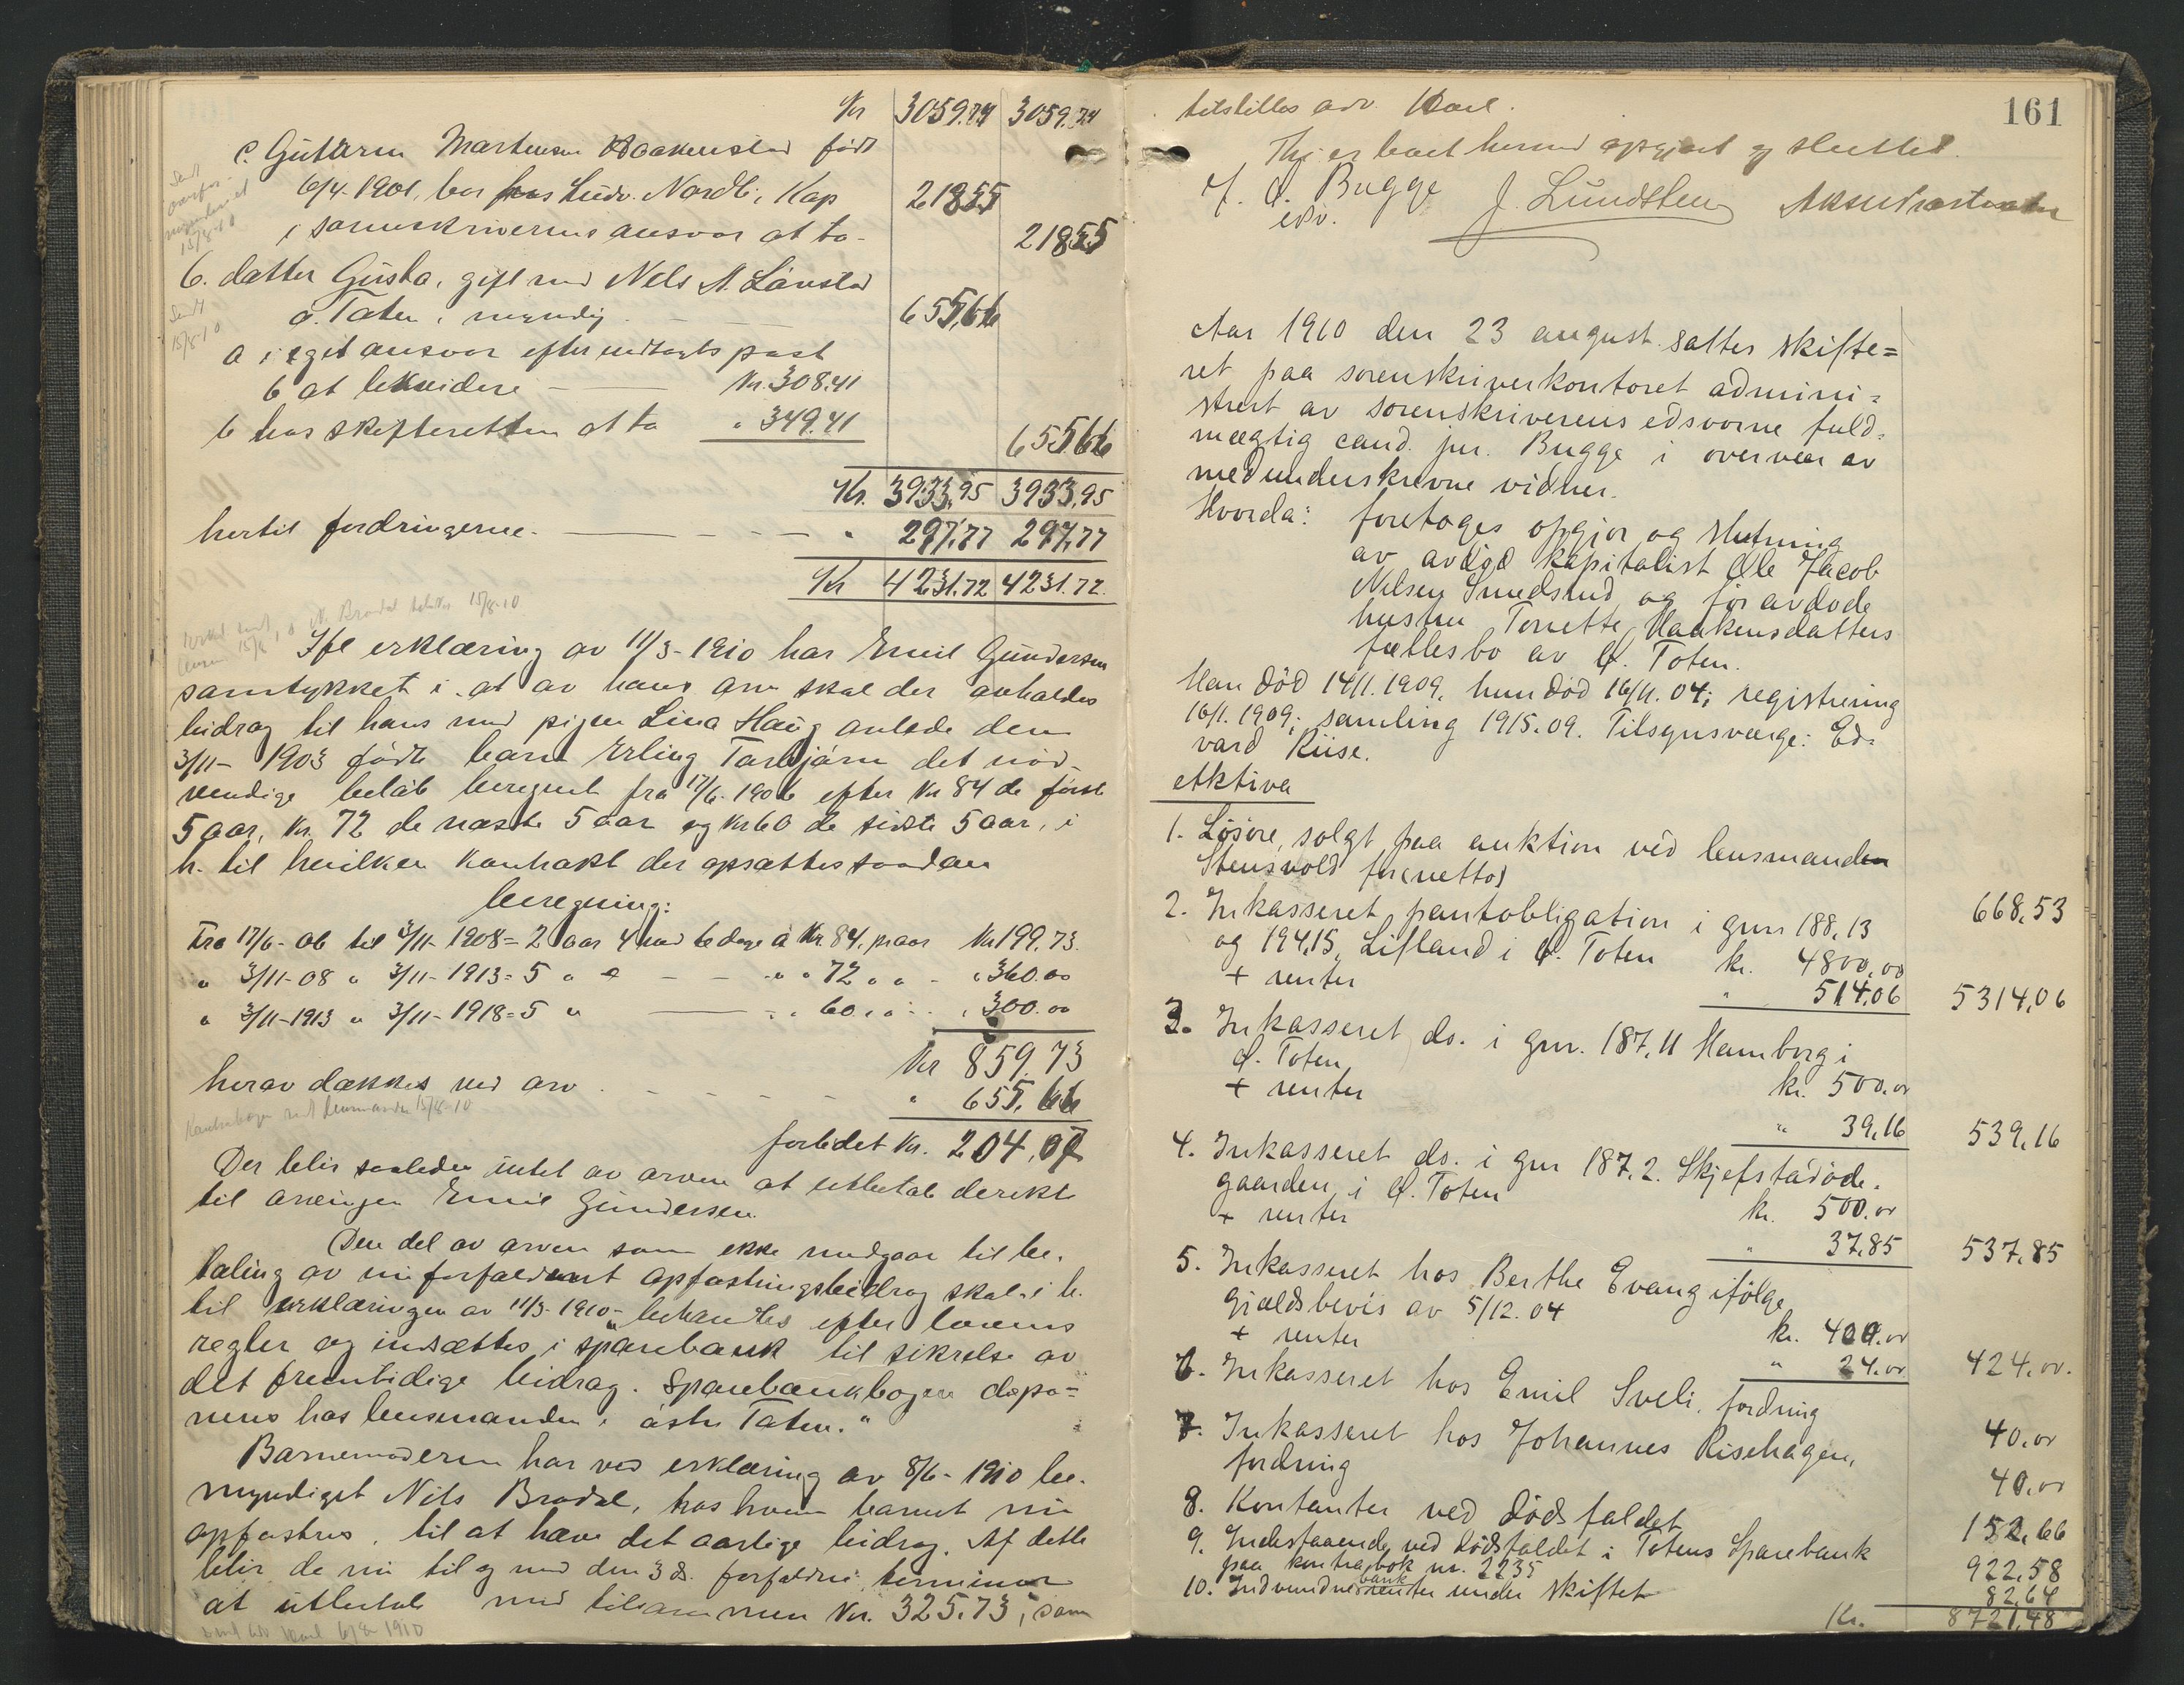 Kr 3059.74 3059.74
c. Guttorm Martinsen Haakenstad født
6/4-1901, bor hos Ludv. Nordli, Kap 218.55
i sorenskriverens ansvar at ta - 218.55
6. datter Gusta, gift med Nels A. Lønstad
ø. Toten, myndig - 655,66
a i eget ansvar efter utdrags post
6 at likvidere - Kr. 308.41
b hos skifteretten at ta " 349.41 655.66
Kr. 3933.95 3933.95
hertil fordringerne. - " 297.77 297.77
Kr 4231.72 4231.72.
Ifl erklæring av 11/3-1910 har Emil Gundersen
samtykket i at av hans arv skal der avholdes
bidrag til hans med pigen Lina Haug avlede den
3/11-1903 fødte barn Erling Torbjørn det nød-
vendige beløb beregnet fra 17/6-1906 efter Kr 84 de første
5 aar, Kr. 72 de næste 5 aar og Kr 60 de sidste 5 aar, i
h. til hvilken kontrakt der opsættes saadan
beregning:
Fra 17/6-06 til 3/11-1908 = 2 aar 4 md 16 dage á Kr. 84, pr aar Kr 199.73.
" 3/11-08 " 3/11-1913 = 5 " á - " " 72 " " - " 360.00
" 3/11-1913 " 3/11-1918 = 5 " - " 60 " " " 300.00
Kr 859.73
herav dækkes ved arv - " 655.66
forledet Kr. 204.07
Der blir saaledes intet av arven at utbetale derekte
til arvingen Emil Gundersen.
Den del av arven som ikke medgaar til be-
taling av nu forfaldent opfostringsbidrag skal i h.
til erklæringen av 11/3-1910 "behandles efter lovens
regler og indsættes i sparebank til sikrelse av
det fremtidige bidrag. Sparebankbogen depo-
neres hos lensmanden i østre Toten."
Barnemoderen har ved erklæring av 8/6-1910 be-
myndiget Nils Brodal, hos hvem barnet nu
opfostres, til at hæve det aarlige bidrag. Af dette
blir de nu til og med den 3 ds. forfaldne terminer
at utbetale med tilsammen Kr. 325.73, som
161
tilstilles adv.
Thi er boet herved opgjort og sluttet.
O. Bugge J. Lundsten
edsv.
Aar 1910 den 23 august sattes skifte=
ret paa sorenskriverkontoret admini=
strert av sorenskriverens edsvorne fuld=
mægtig cand. jur. Bugge i overvær av
medunderskrevne vidner.
Hvorda: foretoges opgjør og slutning
av avdød kapitalist Ole Jacob
Nilsen Smedsrud og før avdøde
hustru Tonette Haakensdatters
fællesbo av Ø. Toten.
Han død 14/1. 1909, hun død 16/11. 04; registrering
16/1. 1909; samling 19/5. 09. Tilsynsværge: Ed=
vard Riise.
Aktiva
1. Løsøre, solgt paa auktion ved lensmanden
Stensvold for (netto) 668,53
2. Inkasseret pantobligation i gnr 188,13
og 194,15, Lifland i Ø. Toten kr. 4800,00
+ renter " 514,06 5314,06
3. Inkasseret do. i gnr. 187,11 Hamborg i
Ø. Toten kr. 500.00
+ renter " 39,16 539,16
4. Inkasseret do. i gnr 187,2. Skjefstadøde-
gaarden i Ø. Toten kr. 500.00
+ renter " 37,85 537,85
5. Inkasseret hos Berthe Evang ifølge
gjældsbevis av 5/12. 04 kr. 400.00
+ renter " 24.00 424.00.
6. Inkasseret hos Emil Sveli, fordring 40.00
7. Inkasseret hos Johannes Risehagen,
fordring 40.00
8. Kontanter ved dødsfaldet 152,66
9. Indestaaende ved dødsfaldet i Totens Sparebank
paa kontrabok nr. 2235 922,58
10. Indvundne bankrenter under skiftet 82,64
Kr. 8721,48